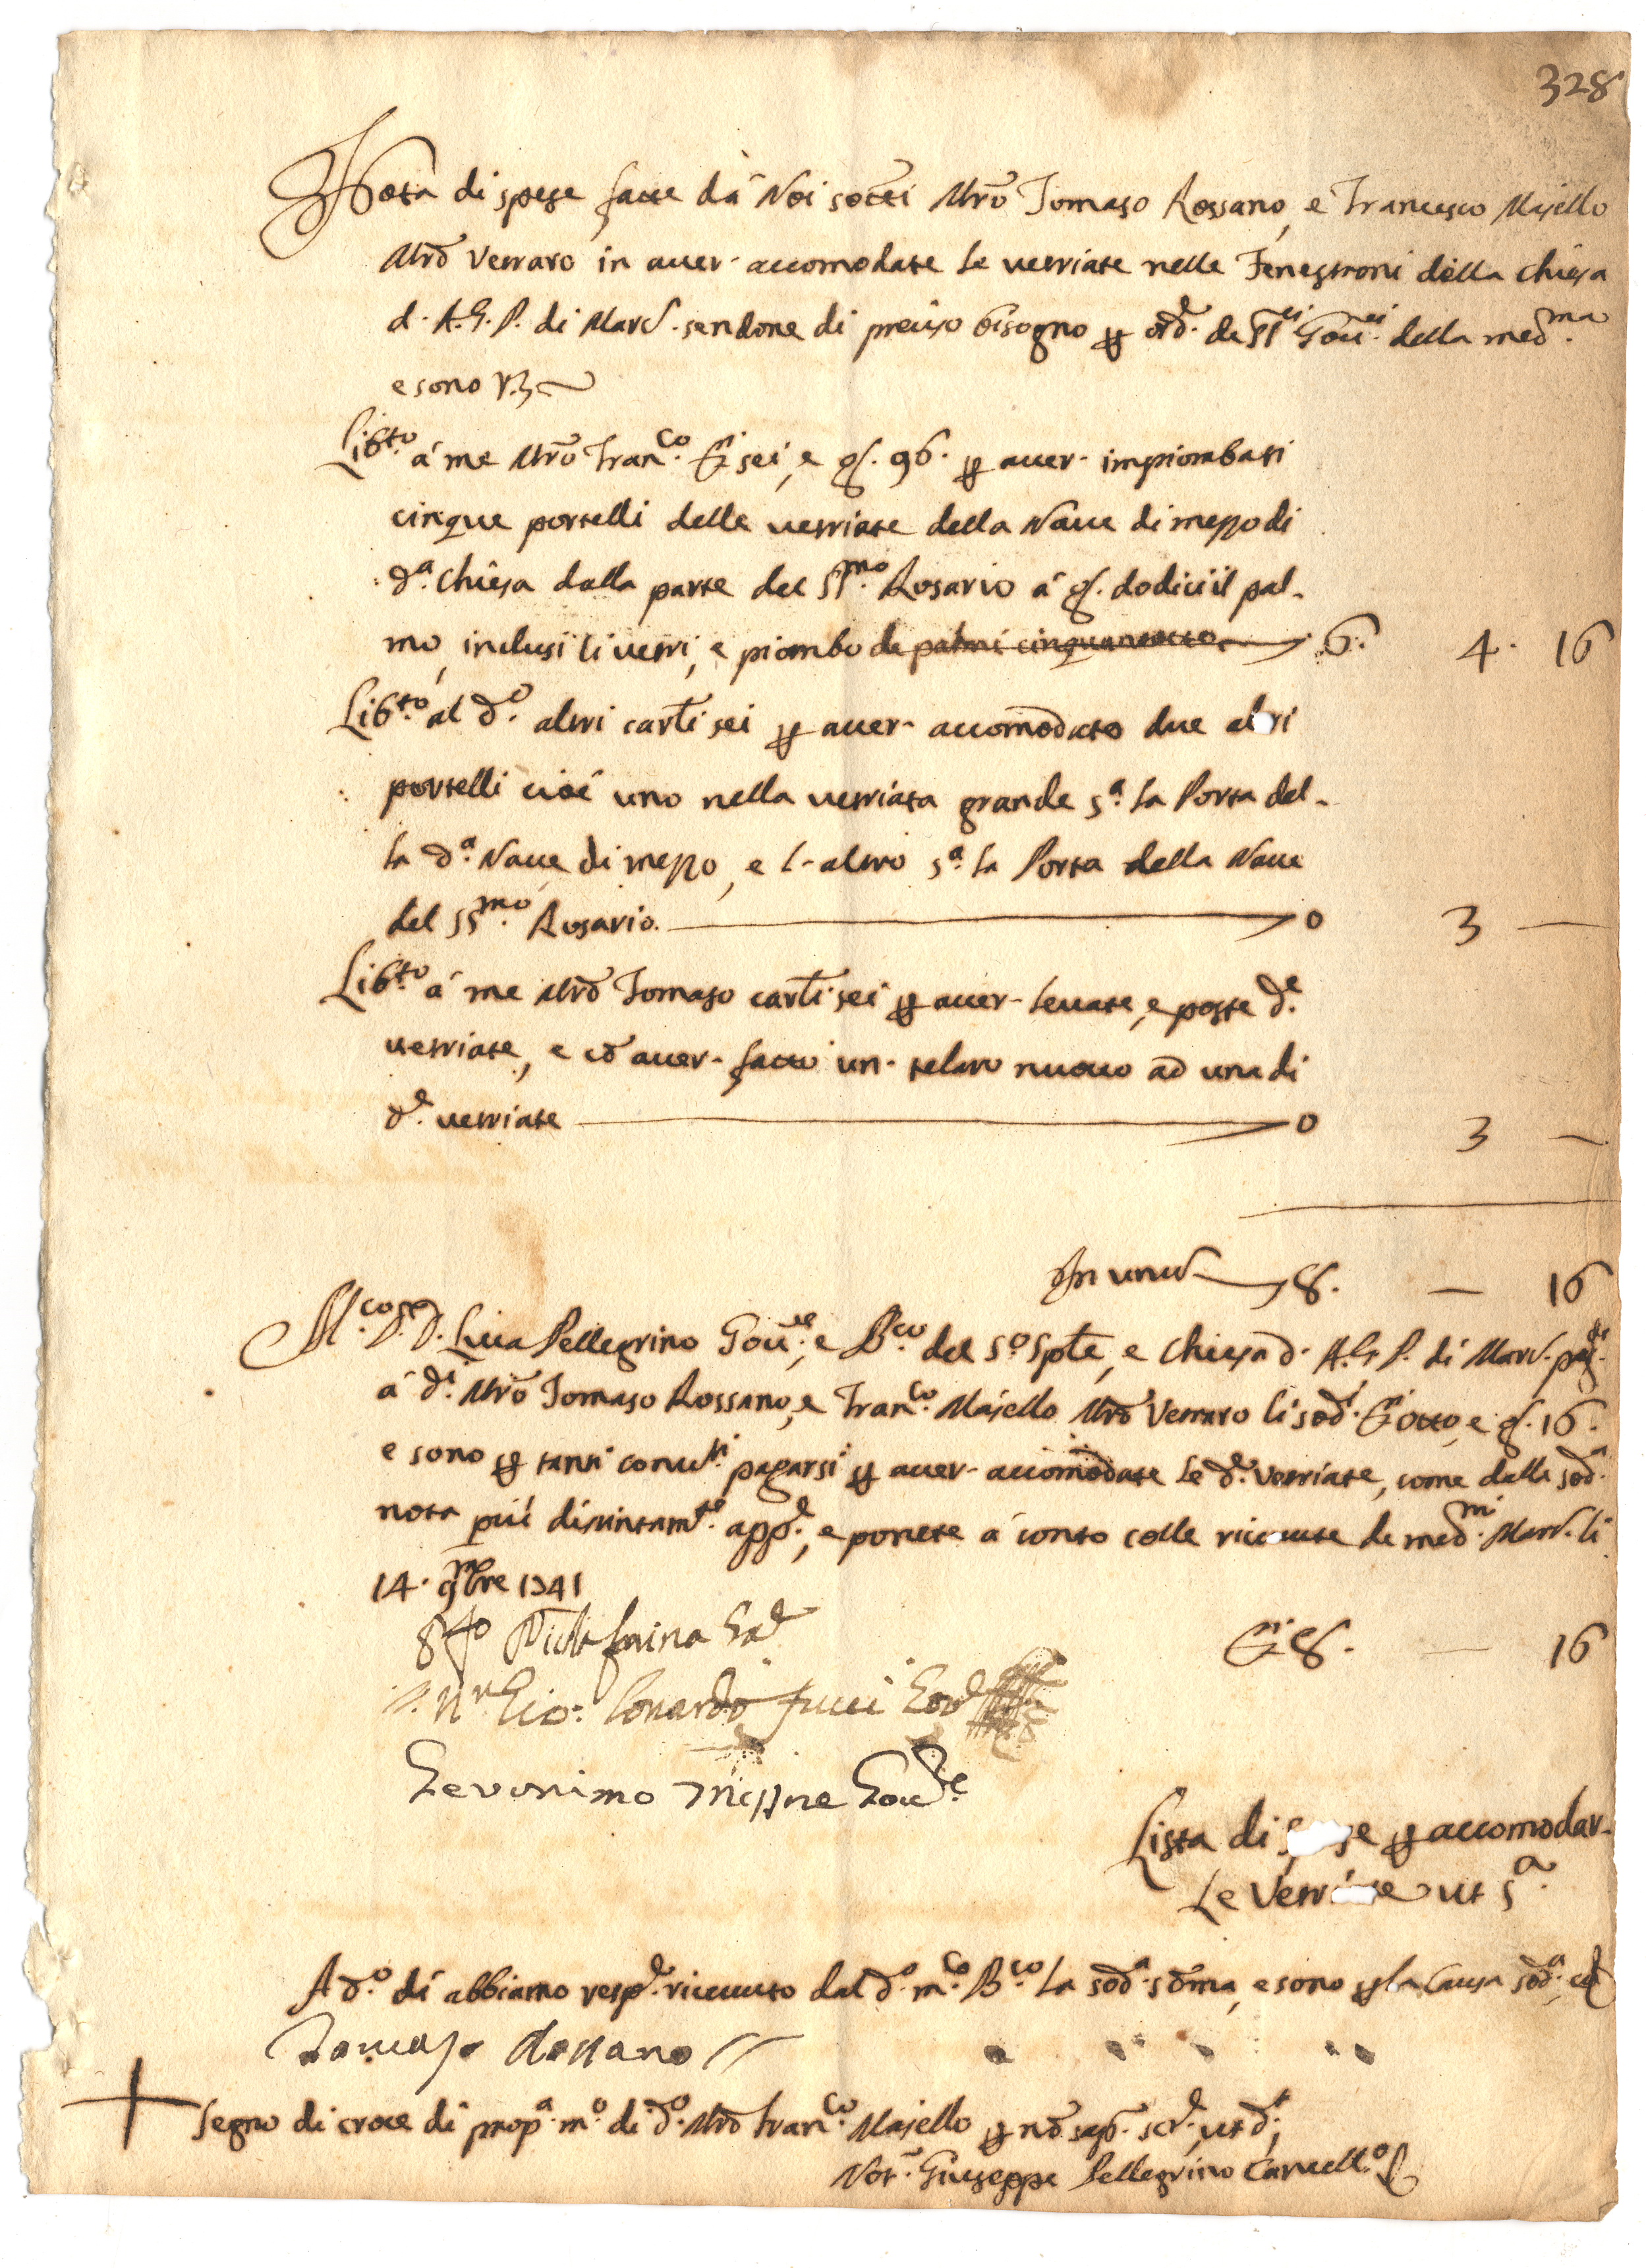 328
Nota di spese fatte dà Noi sotti Mrõ Tomaso Rossano, e Francesco Majello
Mrõ Verraro in aver accomodate le vetriate nelle Fenestroni della Chiesa
d. A.G.P. di Marc. sendone di preciso bisogno per ord. de SS.ri Gov.ri della med.ma
e sono V.z
Lib.to à me Mrõ Fran.co D.i sei, e g. 96. per aver impiombati
cinque portelli delle vetriate della Nave di mezzo di
d.a Chiesa dalla parte del SS.mo Rosario à g. dodici il pal-
mo, inclusi li vetri, e piombo de palmi cinquantotto 6. 4. 16
Lib.to al d.o altri carl.i sei per aver accomodato due altri
portelli cioè uno nella vetriata grande s.a la Porta del-
la d.a Nave di mezzo, e l'altro s.a la Porta della Nave
del SS.mo Rosario. 0 3 —
Lib.to à me Mrõ Tomaso carl.i sei per aver levate, e poste d.e
vetriate, e cõ aver fatto un telaro nuovo ad una di
d.e vetriate 0 3 —
In unu 8. — 16
M.co S.r D. Luca Pellegrino Gov.re, e B.co del S.o Spte, e Chiesa d. A.G.P. di Marc. pag.te
à d.i Mrõ Tomaso Rossano, e Fran.co Majello Mrõ Verraro li sod.i D.i otto, e g. 16.
e sono per tanti convti pagarsi per aver accomodate le d.e vetriate, come dalla sod.a
nota più distintam.te app.e, e ponete à conto colle ricevute de med.mi Marc. li
14. 9mbre 1741
D.i 8. — 16
Gio: Lonardo Gov
Geronimo Gov.re
Lista di spese per accomodar
le Vetriate ut s.a
A d.o dì abbiamo resp.e ricevuto dal d.o m.co B.co la sod.a soma, e sono per la causa sod.a, et
Tomaso Rossano //
+ Segno di croce di prop.a m.o di d.o Mrõ Fran.co Majello per nõ sap. scr.e, ut d.r
Not. Giuseppe Pellegrino Cancell.o